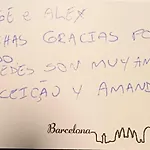 E ALEX
HAS GRACIAS PO
DO
EDES SON MUY AM
CEIÇÃO Y AMAND
Barcelona